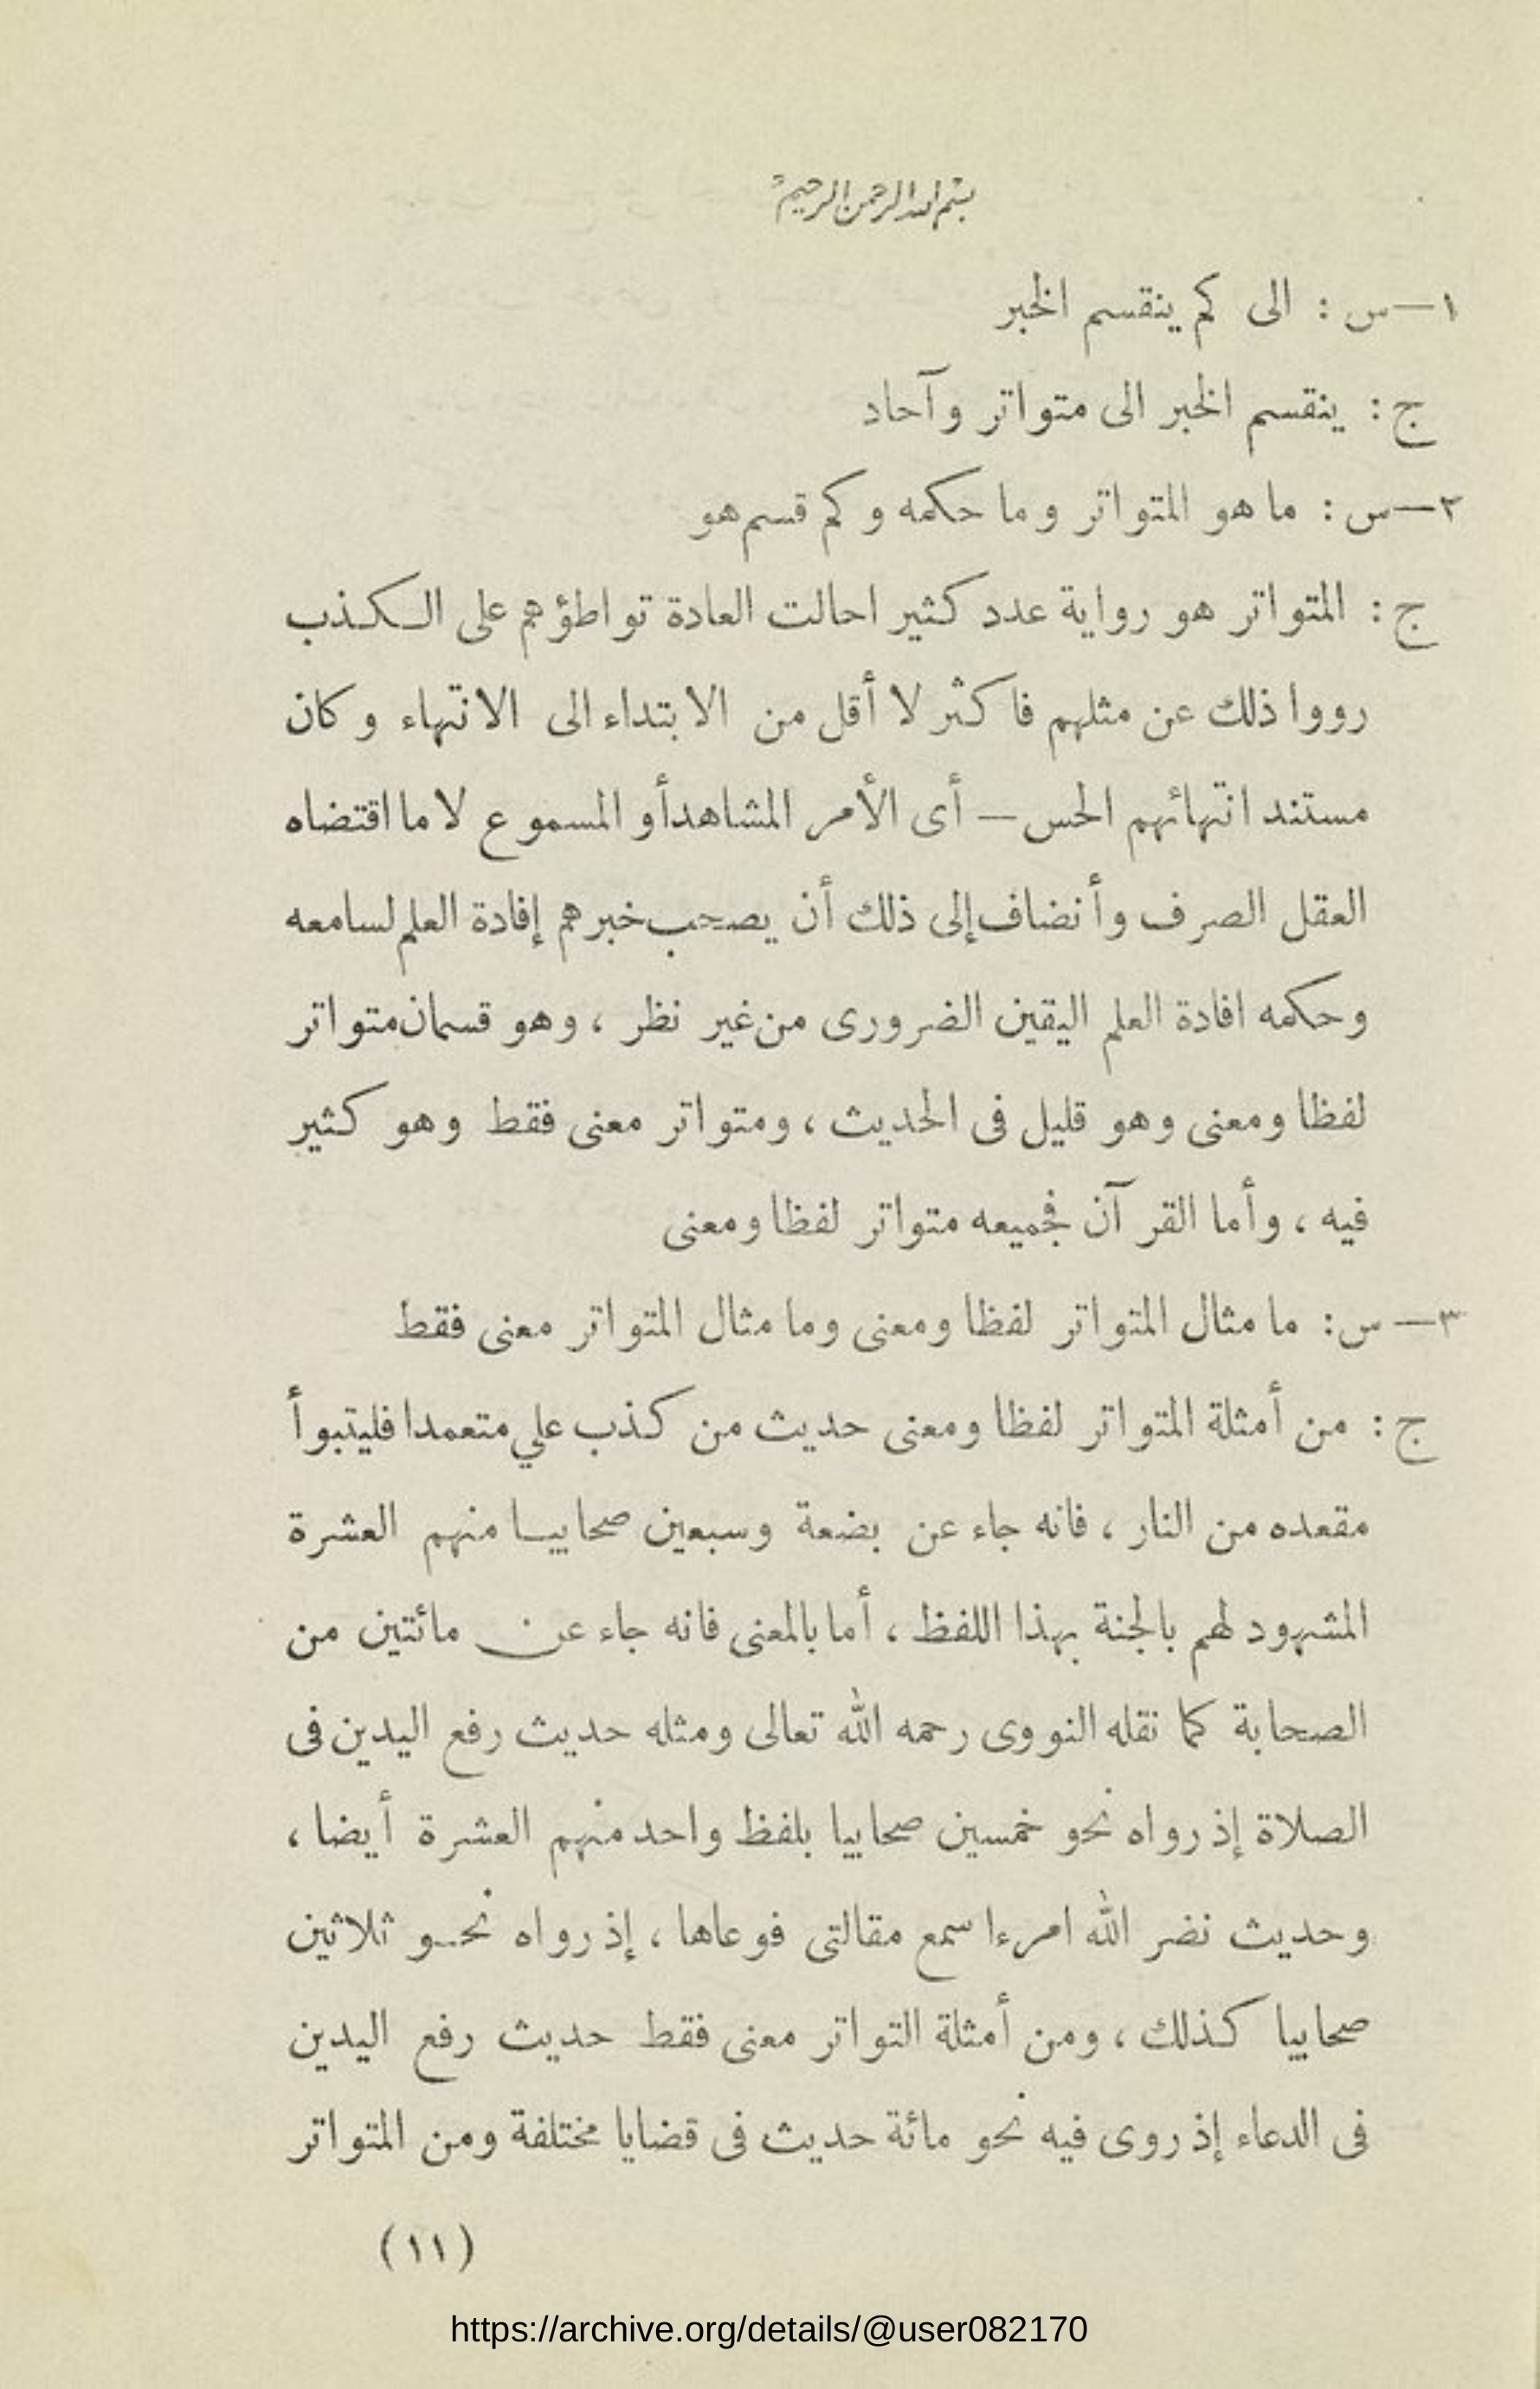 بسم الله الرحمن الرحيم
١—س : الى كم ينقسم الخبر
ج : ينقسم الخبر الى متواتر وآحاد
٢—س : ما هو المتواتر وما حكمه وكم قسم هو
ج : المتواتر هو رواية عدد كثير احالت العادة تواطؤهم على الكذب
رووا ذلك عن مثلهم فاكثر لا أقل من الابتداء الى الانتهاء وكان
مستند انتهائهم الحس — أى الأمر المشاهد أو المسموع لا ما اقتضاه
العقل الصرف وأنضاف إلى ذلك أن يصحب خبرهم إفادة العلم لسامعه
وحكمه افادة العلم اليقين الضرورى من غير نظر ، وهو قسمان متواتر
لفظا ومعنى وهو قليل فى الحديث ، ومتواتر معنى فقط وهو كثير
فيه ، وأما القرآن فجميعه متواتر لفظا ومعنى
٣— س : ما مثال المتواتر لفظا ومعنى وما مثال المتواتر معنى فقط
ج : من أمثلة المتواتر لفظا ومعنى حديث من كذب علي متعمدا فليتبوأ
مقعده من النار ، فانه جاء عن بضعة وسبعين صحابيا منهم العشرة
المشهود لهم بالجنة بهذا اللفظ ، أما بالمعنى فانه جاء عن مائتين من
الصحابة كما نقله النووى رحمه الله تعالى ومثله حديث رفع اليدين فى
الصلاة إذ رواه نحو خمسين صحابيا بلفظ واحد منهم العشرة أيضا ،
وحديث نضر الله امرءا سمع مقالتى فوعاها ، إذ رواه نحو ثلاثين
صحابيا كذلك ، ومن أمثلة التواتر معنى فقط حديث رفع اليدين
فى الدعاء إذ روى فيه نحو مائة حديث فى قضايا مختلفة ومن المتواتر
(١١)
https://archive.org/details/@user082170